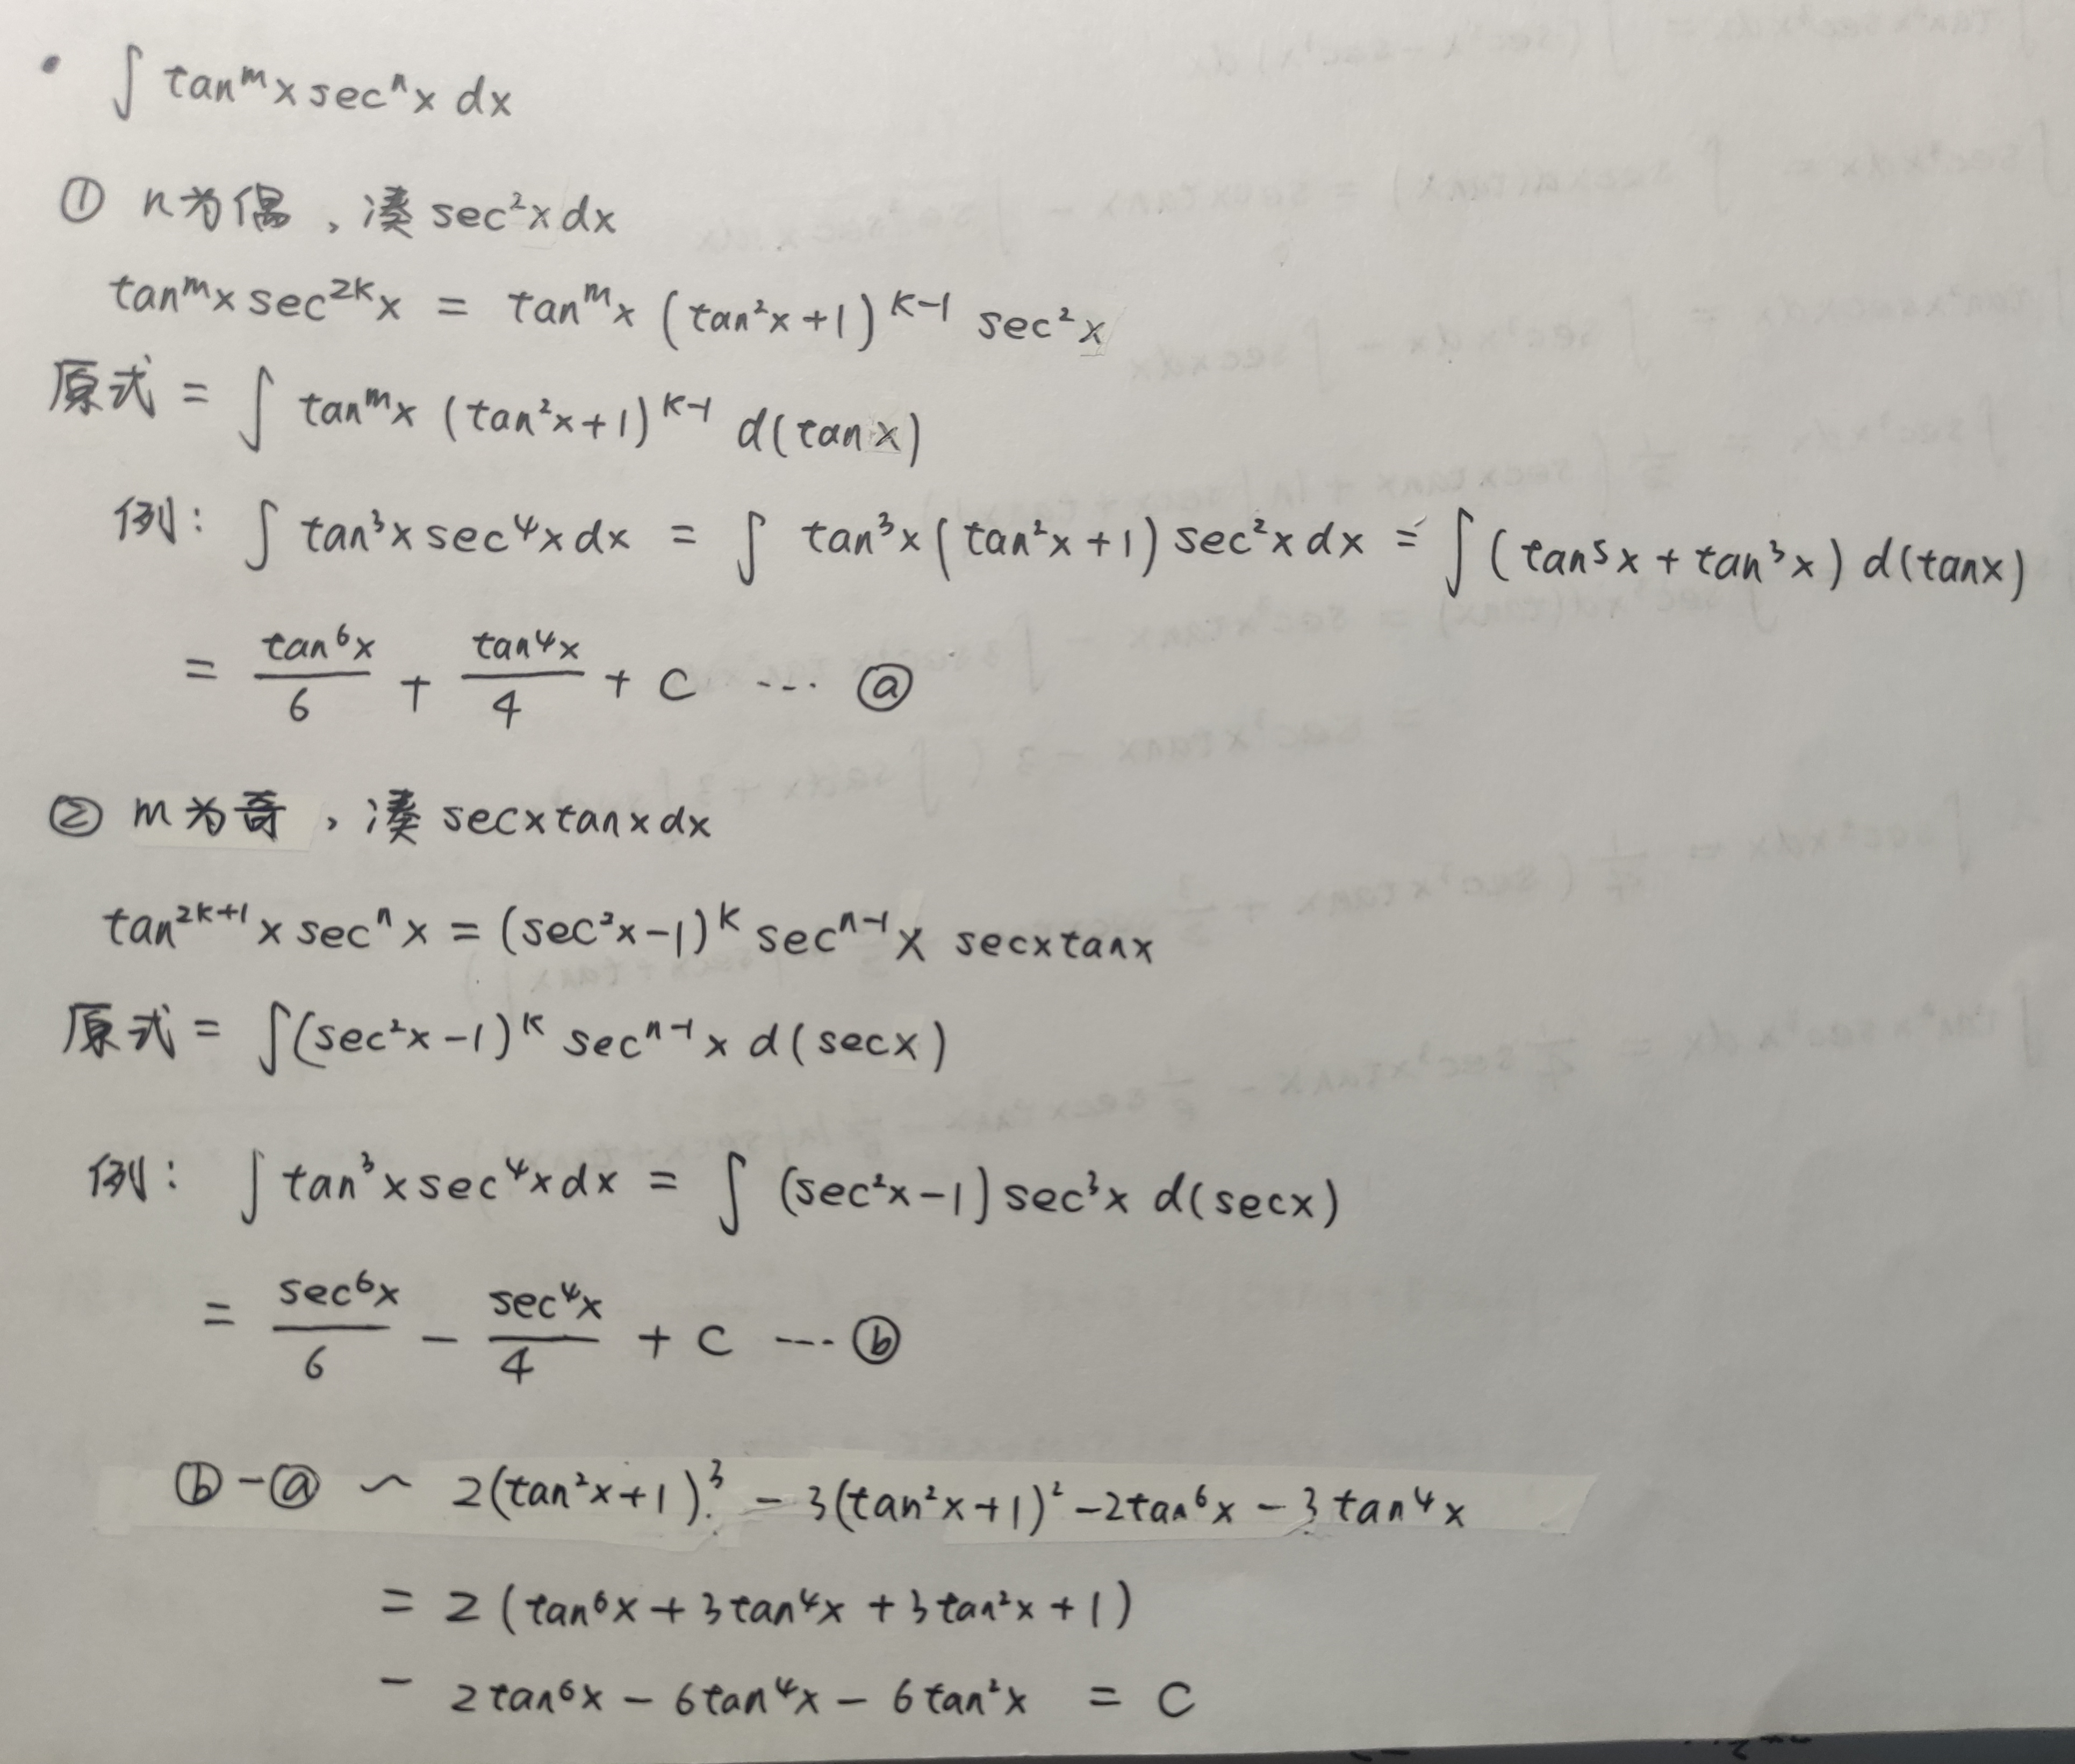 • ∫ tanᵐx secⁿx dx
① n为偶，凑 sec²x dx
tanᵐx sec²ᵏx = tanᵐx (tan²x+1)ᵏ⁻¹ sec²x
原式 = ∫ tanᵐx (tan²x+1)ᵏ⁻¹ d(tanx)
例: ∫ tan³x sec⁴x dx = ∫ tan³x (tan²x+1) sec²x dx = ∫ (tan⁵x + tan³x) d(tanx)
= tan⁶x/6 + tan⁴x/4 + C ... ⓐ
② m为奇，凑 secx tanx dx
tan²ᵏ⁺¹x secⁿx = (sec²x-1)ᵏ secⁿ⁻¹x secx tanx
原式 = ∫(sec²x-1)ᵏ secⁿ⁻¹x d(secx)
例: ∫ tan³x sec⁴x dx = ∫ (sec²x-1) sec³x d(secx)
= sec⁶x/6 - sec⁴x/4 + C ... ⓑ
ⓑ-ⓐ ~ 2(tan²x+1)³ - 3(tan²x+1)² - 2tan⁶x - 3tan⁴x
= 2(tan⁶x + 3tan⁴x + 3tan²x + 1)
- 2tan⁶x - 6tan⁴x - 6tan²x = C